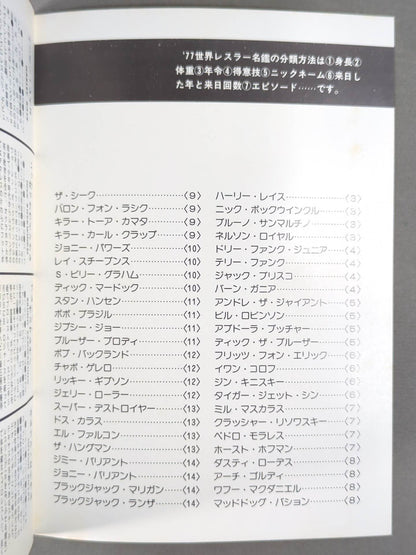 '77世界レスラー名鑑の分類方法は①身長②
体重③年令④得意技⑤ニックネーム⑥来日し
た年と来日回数⑦エピソード……です。
ハーリー・レイス…………………〈3〉
ニック・ボックウインクル…………〈3〉
ブルーノ・サンマルチノ……………〈3〉
ネルソン・ロイヤル…………………〈3〉
ドリー・ファンク・ジュニア………〈4〉
テリー・ファンク……………………〈4〉
ジャック・ブリスコ…………………〈4〉
バーン・ガニア………………………〈4〉
アンドレ・ザ・ジャイアント………〈5〉
ビル・ロビンソン……………………〈5〉
アブドーラ・ブッチャー……………〈5〉
ディック・ザ・ブルーザー…………〈5〉
フリッツ・フォン・エリック………〈6〉
イワン・コロフ………………………〈6〉
ジン・キニスキー……………………〈6〉
タイガー・ジェット・シン…………〈6〉
ミル・マスカラス……………………〈7〉
クラッシャー・リソワスキー………〈7〉
ペドロ・モラレス……………………〈7〉
ホースト・ホフマン…………………〈7〉
ダスティ・ローデス…………………〈8〉
アーチ・ゴルディ……………………〈8〉
ワフー・マクダニエル………………〈8〉
マッドドッグ・バション……………〈8〉
ザ・シーク……………………………〈9〉
バロン・フォン・ラシク……………〈9〉
キラー・トーア・カマタ……………〈9〉
キラー・カール・クラップ…………〈9〉
ジョニー・パワーズ…………………〈10〉
レイ・スチーブンス…………………〈10〉
S・ビリー・グラハム………………〈10〉
ディック・マードック………………〈10〉
スタン・ハンセン……………………〈11〉
ボボ・ブラジル………………………〈11〉
ジプシー・ジョー……………………〈11〉
ブルーザー・ブロディ………………〈11〉
ボブ・バックランド…………………〈12〉
チャボ・ゲレロ………………………〈12〉
リッキー・ギブソン…………………〈12〉
ジェリー・ローラー…………………〈12〉
スーパー・デストロイヤー…………〈13〉
ドス・カラス…………………………〈13〉
エル・ファルコン……………………〈13〉
ザ・ハングマン………………………〈13〉
ジミー・バリアント…………………〈14〉
ジョニー・バリアント………………〈14〉
ブラックジャック・マリガン………〈14〉
ブラックジャック・ランザ…………〈14〉